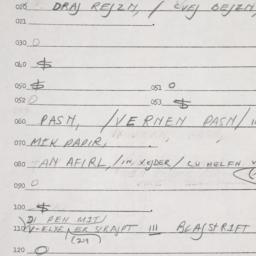 020 DRAJ REJZN, / CVEJ REJZN,
021
030 O
040 $
050 $ 051 O
052 O 053 $
060 PASN, /VERNEN PASN/
070 MIK PAPIR,
080 AN AFIRL/IN, XEJDER/ CU HELFN
090 O
100 $
DI PEN MIT/
110 ER SKRAJPT III ALAJSKRIFT
(24)
120 O